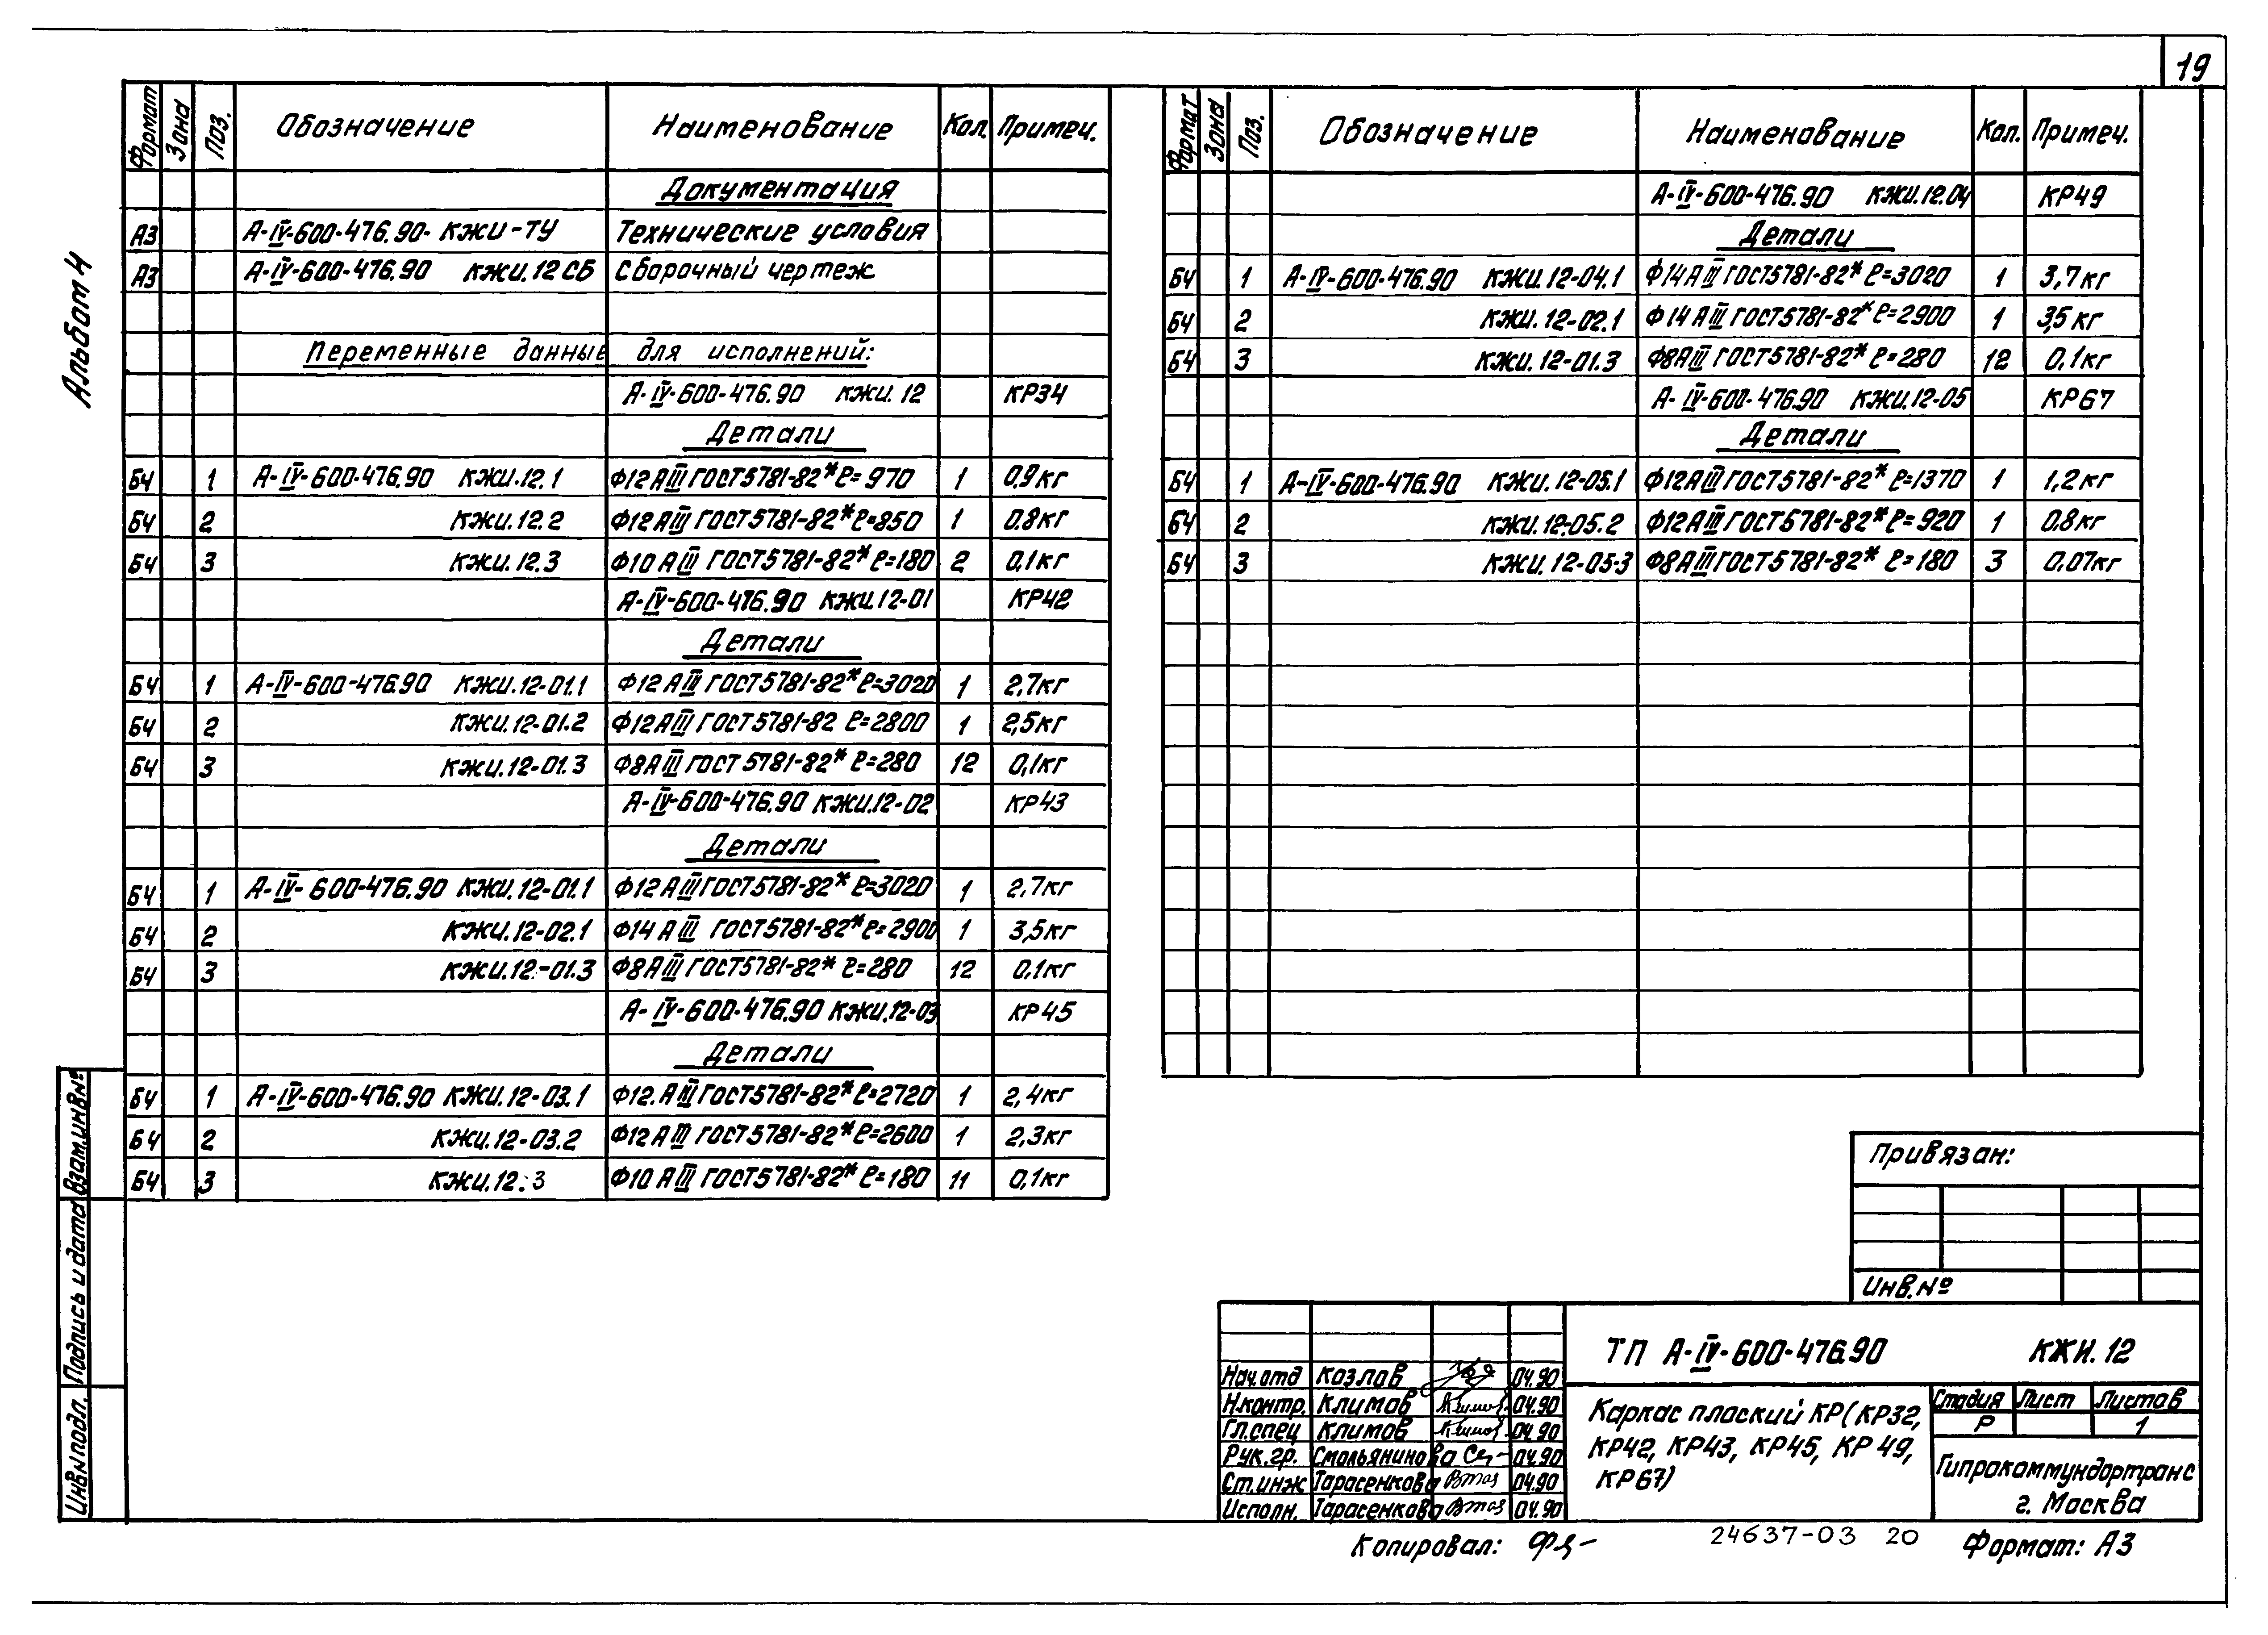 19
Альбом 4
Формат Зона Поз. Обозначение Наименование Кол. Примеч.
Документация
А3 А-IV-600-476.90- КЖИ-ТУ Технические условия
А3 А-IV-600-476.90 КЖИ.12СБ Сборочный чертеж
Переменные данные для исполнений:
А-IV-600-476.90 КЖИ.12 КР34
Детали
БЧ 1 А-IV-600-476.90 КЖИ.12.1 Ф12АIII ГОСТ5781-82* ℓ=970 1 0,9кг
БЧ 2 КЖИ.12.2 Ф12АIII ГОСТ5781-82* ℓ=850 1 0.8кг
БЧ 3 КЖИ.12.3 Ф10АIII ГОСТ5781-82* ℓ=180 2 0,1кг
А-IV-600-476.90 КЖИ.12-01 КР42
Детали
БЧ 1 А-IV-600-476.90 КЖИ.12-01.1 Ф12АIII ГОСТ5781-82* ℓ=3020 1 2,7кг
БЧ 2 КЖИ.12-01.2 Ф12АIII ГОСТ5781-82 ℓ=2800 1 2,5кг
БЧ 3 КЖИ.12-01.3 Ф8АIII ГОСТ 5781-82* ℓ=280 12 0,1кг
А-IV-600-476.90 КЖИ.12-02 КР43
Детали
БЧ 1 А-IV-600-476.90 КЖИ.12-01.1 Ф12АIII ГОСТ5781-82* ℓ=3020 1 2,7кг
БЧ 2 КЖИ.12-02.1 Ф14АIII ГОСТ5781-82* ℓ=2900 1 3,5кг
БЧ 3 КЖИ.12-01.3 Ф8АIII ГОСТ5781-82* ℓ=280 12 0,1кг
А-IV-600-476.90 КЖИ.12-03 КР45
Детали
БЧ 1 А-IV-600-476.90 КЖИ.12-03.1 Ф12.АIII ГОСТ5781-82* ℓ=2720 1 2,4кг
БЧ 2 КЖИ.12-03.2 Ф12АIII ГОСТ5781-82* ℓ=2600 1 2,3кг
БЧ 3 КЖИ.12.3 Ф10АIII ГОСТ5781-82* ℓ=180 11 0,1кг
Формат Зона Поз. Обозначение Наименование Кол. Примеч.
А-IV-600-476.90 КЖИ.12.04 КР49
Детали
БЧ 1 А-IV-600-476.90 КЖИ.12-04.1 Ф14АIII ГОСТ5781-82* ℓ=3020 1 3,7кг
БЧ 2 КЖИ.12-02.1 Ф14АIII ГОСТ5781-82* ℓ=2900 1 3,5кг
БЧ 3 КЖИ.12-01.3 Ф8АIII ГОСТ5781-82* ℓ=280 12 0,1кг
А-IV-600-476.90 КЖИ.12-05 КР67
Детали
БЧ 1 А-IV-600-476.90 КЖИ.12-05.1 Ф12АIII ГОСТ5781-82* ℓ=1370 1 1,2кг
БЧ 2 КЖИ.12-05.2 Ф12АIII ГОСТ5781-82* ℓ=920 1 0.8кг
БЧ 3 КЖИ.12-05-3 Ф8АIII ГОСТ5781-82* ℓ=180 3 0,07кг
Взам.инв№
Подпись и дата
Инв№ подл.
Привязан:
Инв.№
ТП А-IV-600-476.90 КЖИ.12
Нач.отд Козлов 04.90
Н.контр. Климов 04.90
Гл.спец Климов 04.90
Рук.гр. Смольянинова 04.90
Ст.инж Тарасенкова 04.90
Исполн. Тарасенкова 04.90
Каркас плоский КР(КР32,
КР42, КР43, КР45, КР49,
КР67)
Стадия Лист Листов
Р 1
Гипрокоммундортранс
г. Москва
Копировал:
24637-03 20
Формат: А3